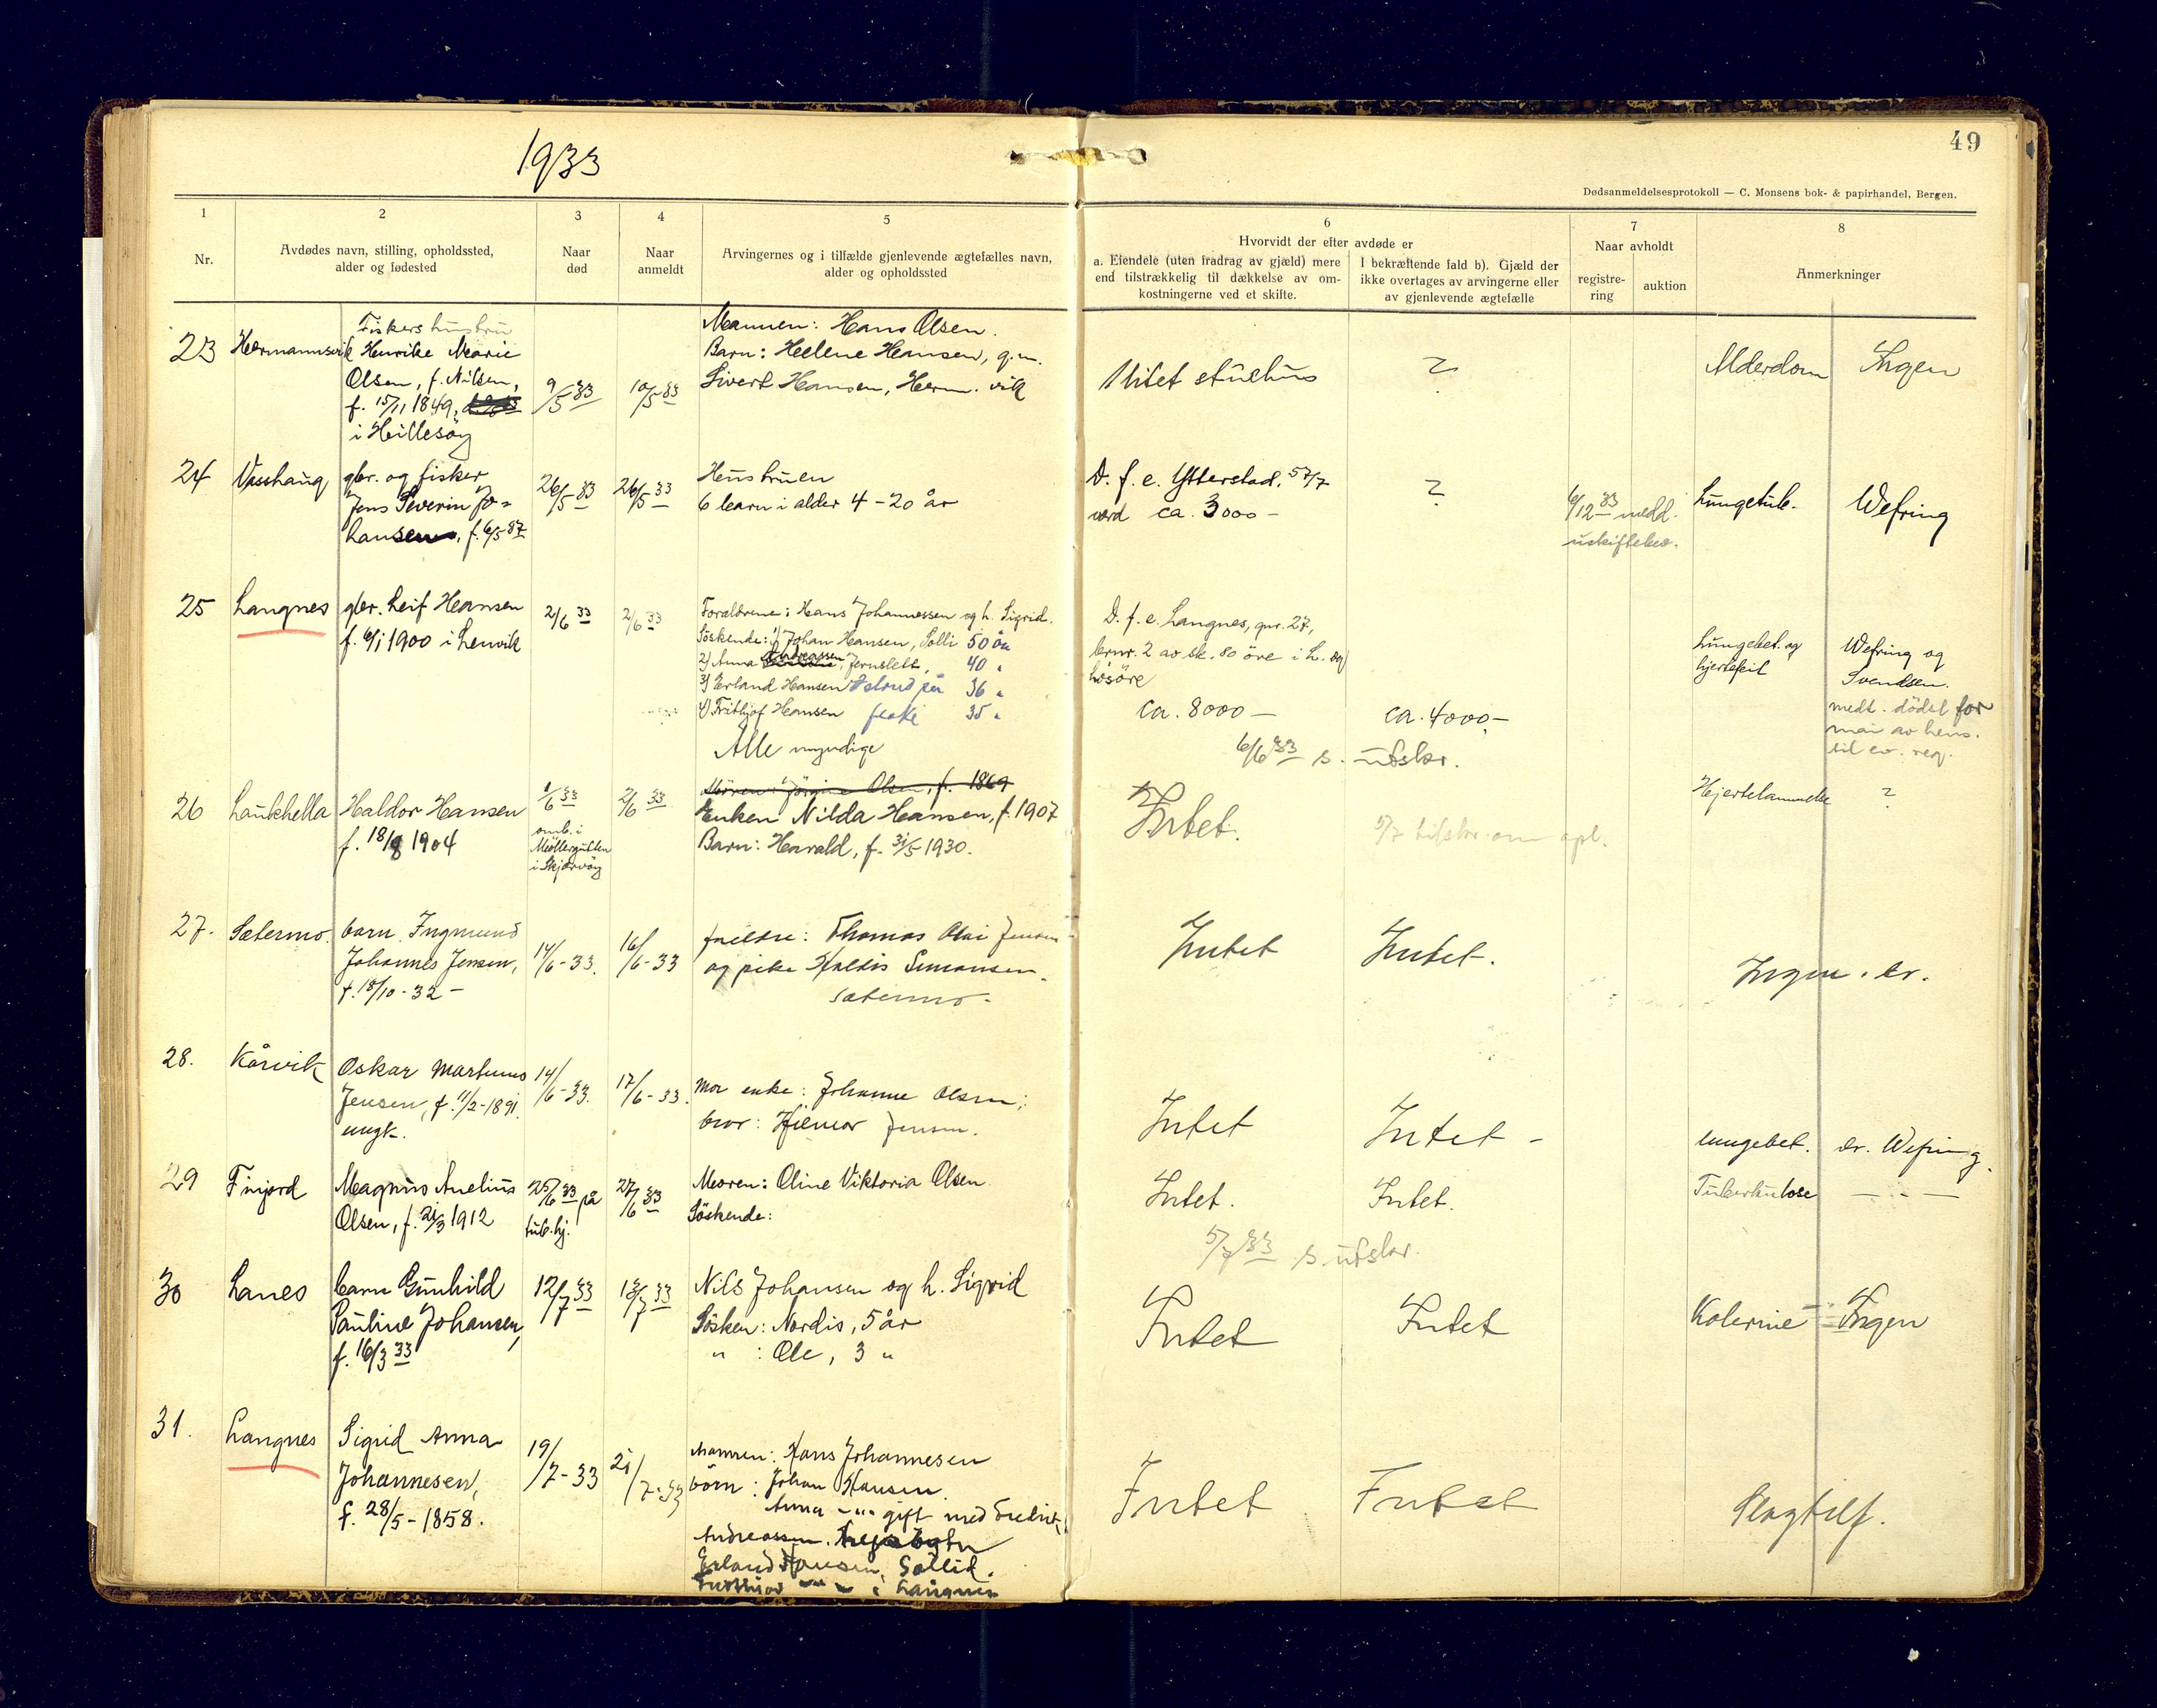 1933
49
Dødsanmeldelsesprotokoll — C. Monsens bok- & papirhandel, Bergen.
1 2 3 4 5 6 7 8
Nr.
Avdødes navn, stilling, opholdssted,
alder og fødested
Naar
død
Naar
anmeldt
Arvingernes og i tilfælde gjenlevende ægtefælles navn,
alder og opholdssted
Hvorvidt der efter avdøde er
a. Eiendele (uten fradrag av gjæld) mere
end tilstrækkelig til dækkelse av om-
kostningerne ved et skifte.
I bekræftende fald b). Gjæld der
ikke overtages av arvingerne eller
av gjenlevende ægtefælle
Naar avholdt
registre-
ring
auktion
Anmerkninger
23 Hermannsvik
Fiskers hustru
Henrike Marie
Olsen, f. Nilsen,
f. 15/11 1849,
i Hillesöy
9/5 33
10/5 33
Mannen: Hans Olsen.
Barn: Helene Hansen, g.m.
Sivert Hansen, Herm.vik
1 litet stuehus
?
Alderdom
Ingen
24 Vasshaug
gbr. og fisker
Jens Severin Jo-
hansen, f. 6/5 87
26/5 33
26/5 33
Hustruen
6 barn i alder 4-20 år
D. f. e. Ytterstad, 57/7
verd ca. 3000 -
?
6/12 33 medd.
uskiftebev.
Lungetub.
Wefring
25 Langnes
gbr. Leif Hansen
f. 6/1 1900 i Lenvik
2/6 33
2/6 33
Foreldrene: Hans Johannessen og h. Sigrid.
Söskende: 1) Johan Hansen, Solli 50 år
2) Anna Andreassen, Jernslett, 40 "
3) Erland Hansen 36 "
4) Fritjof Hansen 35 "
Alle myndige
D. f. e. Langnes, gnr. 27,
brnr. 2 av sk. 80 öre i L. og
lösöre
ca. 8000 -
ca. 4000,-
6/6 33 s. utskr.
Lungebet. og
hjertefeil
Wefring og
Svendsen.
medt. dödsf for
til ev. reg.
26 Laukhella
Haldor Hansen
f. 18/8 1904
1/6 33
omb. i
Möllergutten
i Skjervöy
2/6 33
Moren: Jörgine Olsen, f. 1869
Enken Nilda Hansen, f. 1907
Barn: Harald, f. 31/5 1930.
Intet.
5/7 tilskr. om opl.
Hjertelammelse
?
27. Sætermo.
barn Ingmund
Johannes Jensen,
f. 18/10-32 -
14/6-33.
16/6-33
foreldre: Thomas Olai Jensen
og pike Haldis Simonsen.
Sætermo.
Intet
Intet.
Ingen. dr.
28. Kårvik
Oskar Martinus
Jensen, f. 11/2-1891.
ungk.
14/6-33.
17/6-33.
Mor enke: Johanne Olsen;
bror: Hilmar Jensen.
Intet
Intet -
lungebet.
dr. Wefring.
29 Finjord
Magnus Anelius
Olsen, f. 21/3 1912
25/6 33 på
tub.hj.
27/6 33
Moren: Oline Viktoria Olsen
Söskende:
Intet.
Intet.
5/7 33 s. utskr.
Tuberkulose
— " —
30 Lanes
barn Gunhild
Pauline Johansen,
f. 16/3 33
12/7 33
13/7 33
Nils Johansen og h. Sigrid
Sösken: Nordis, 5 år
" : Ole, 3 "
Intet
Intet
Kolerine
Ingen
31. Langnes
Sigrid Anna
Johannesen,
f. 28/5-1858.
19/7-33
21/7-33
Mannen: Hans Johannesen
börn: Johan Hansen
Anna — " — gift med Fredrik
Andreassen.
Erland Hansen, Sollid.
Fritthjof — " — , Langnes
Intet
Intet
Slagtilf.